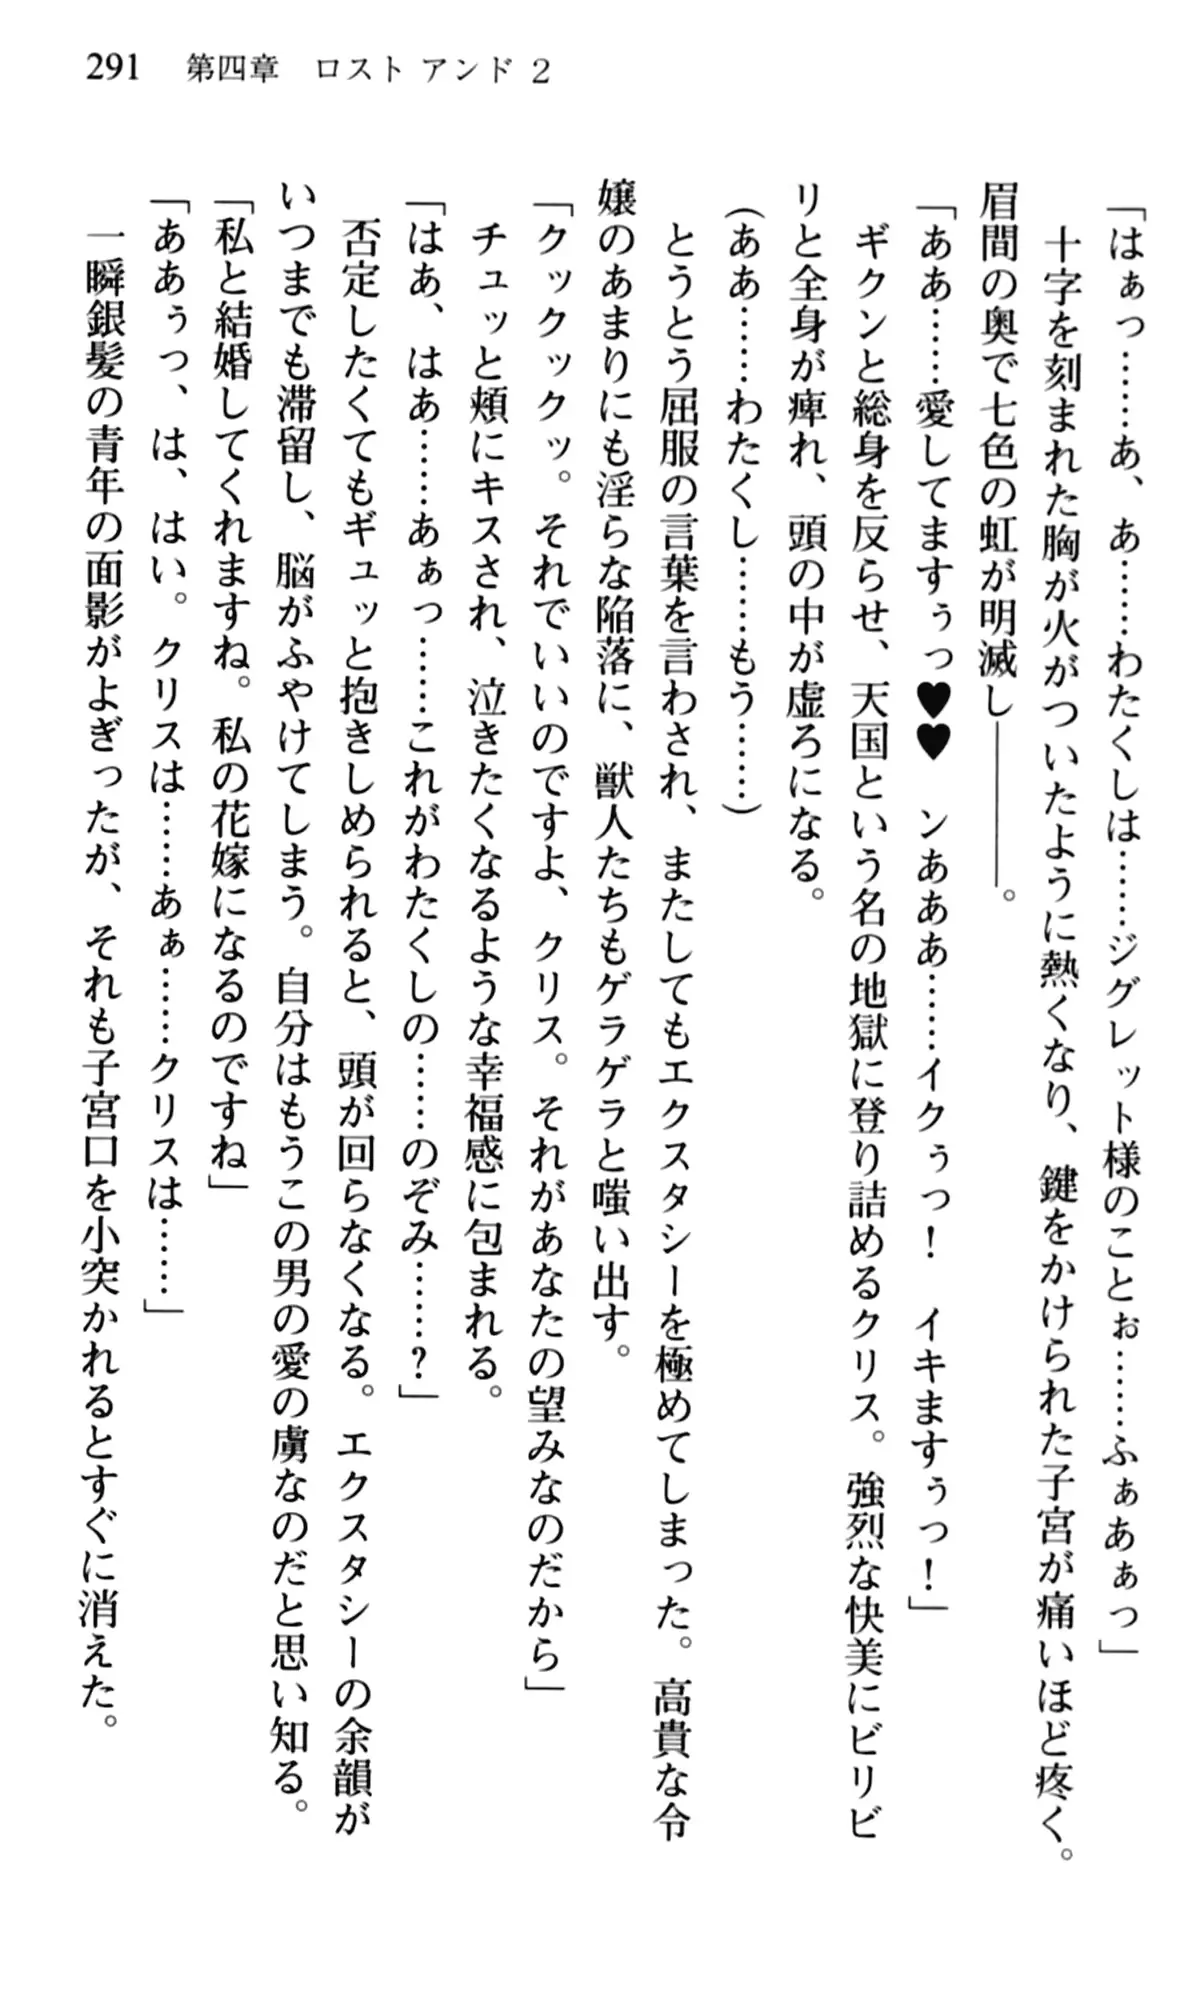 291　第四章　ロスト アンド 2
「はぁっ……あ、あ……わたくしは……ジグレット様のことぉ……ふぁあぁっ」
　十字を刻まれた胸が火がついたように熱くなり、鍵をかけられた子宮が痛いほど疼く。
眉間の奥で七色の虹が明滅し――――。
「ああ……愛してますぅっ♥♥　ンあああ……イクぅっ！　イキますぅっ！」
　ギクンと総身を反らせ、天国という名の地獄に登り詰めるクリス。強烈な快美にビリビ
リと全身が痺れ、頭の中が虚ろになる。
（ああ……わたくし……もう……）
　とうとう屈服の言葉を言わされ、またしてもエクスタシーを極めてしまった。高貴な令
嬢のあまりにも淫らな陥落に、獣人たちもゲラゲラと嗤い出す。
「クックックッ。それでいいのですよ、クリス。それがあなたの望みなのだから」
　チュッと頬にキスされ、泣きたくなるような幸福感に包まれる。
「はあ、はあ……あぁっ……これがわたくしの……のぞみ……？」
　否定したくてもギュッと抱きしめられると、頭が回らなくなる。エクスタシーの余韻が
いつまでも滞留し、脳がふやけてしまう。自分はもうこの男の愛の虜なのだと思い知る。
「私と結婚してくれますね。私の花嫁になるのですね」
「ああぅっ、は、はい。クリスは……あぁ……クリスは……」
　一瞬銀髪の青年の面影がよぎったが、それも子宮口を小突かれるとすぐに消えた。